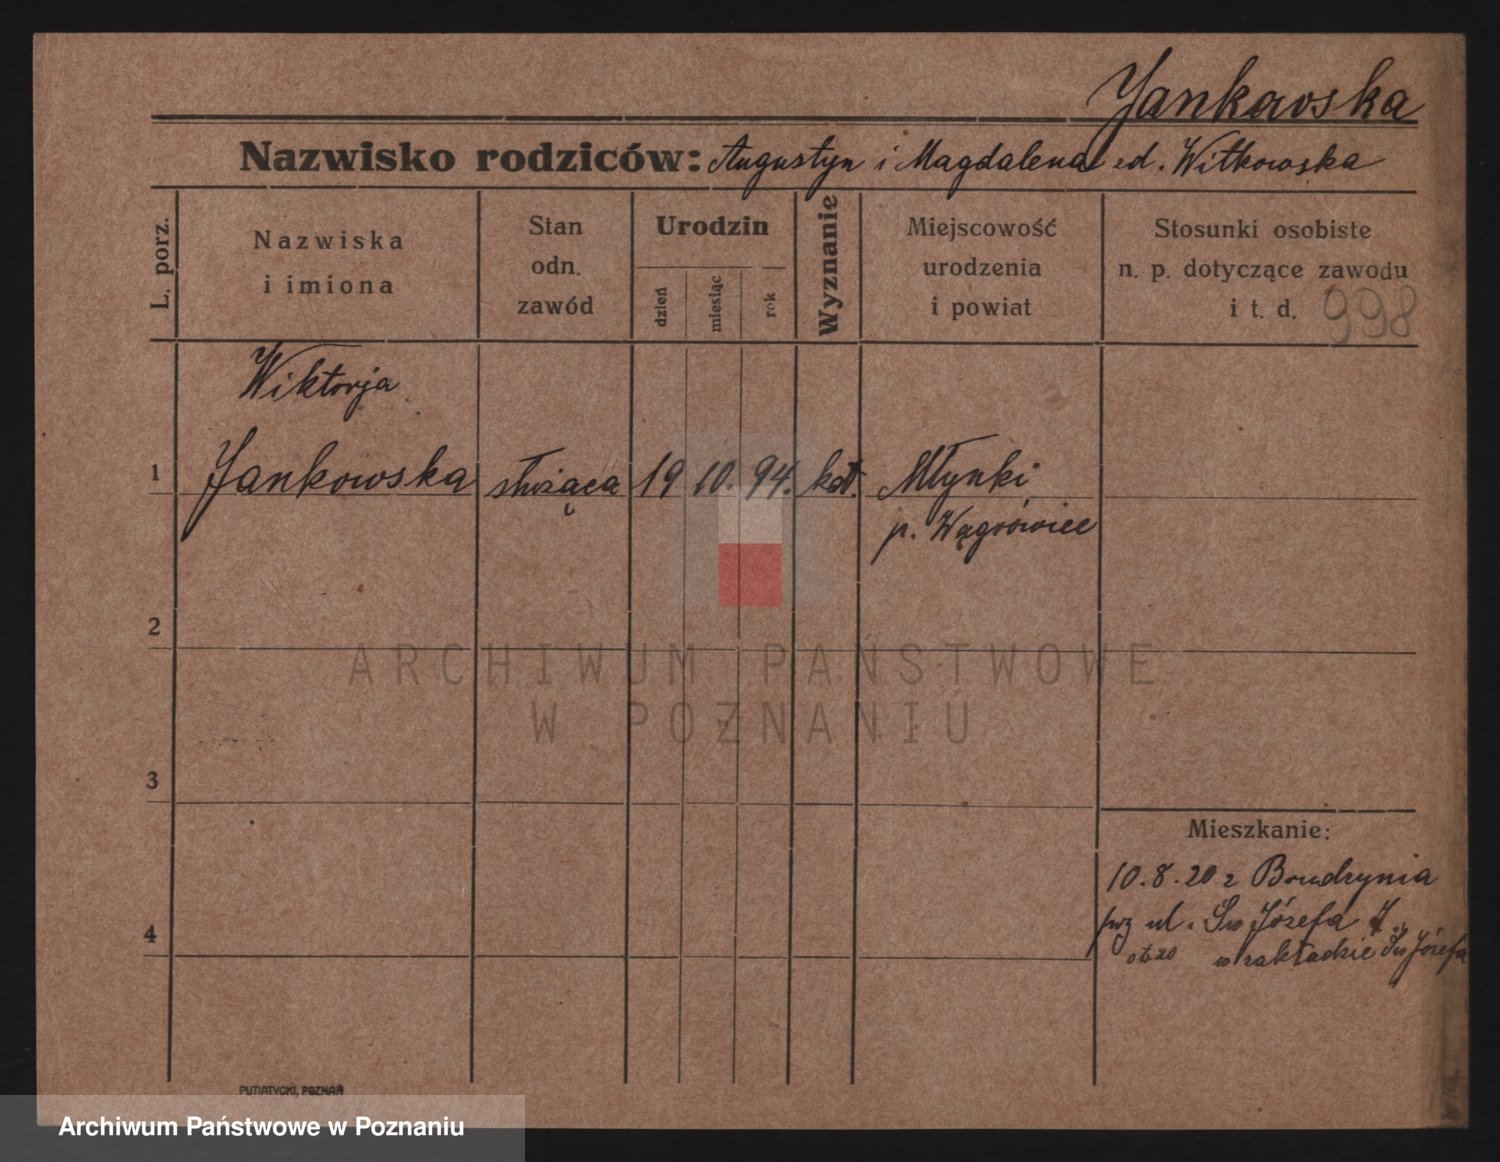 Jankowska
Nazwisko rodziców: Augustyn i Magdalena ed. Witkowska
L. porz.
Nazwiska
i imiona
Stan
odn.
zawód
Urodzin
dzień
miesiąc
rok
Wyznanie
Miejscowość
urodzenia
i powiat
Stosunki osobiste
n. p. dotyczące zawodu
i t. d. 998
Wiktorja
1 Jankowska służąca 19 10. 94. kat. Młynki
p. Wągrówiec
2
ARCHIWUM PAŃSTWOWE
W POZNANIU
3
Mieszkanie:
10.8.20 z Brudzynia
ul. Św Józefa 7
4
w zakładzie Św Józefa
PUTIATYCKI, POZNAŃ
Archiwum Państwowe w Poznaniu